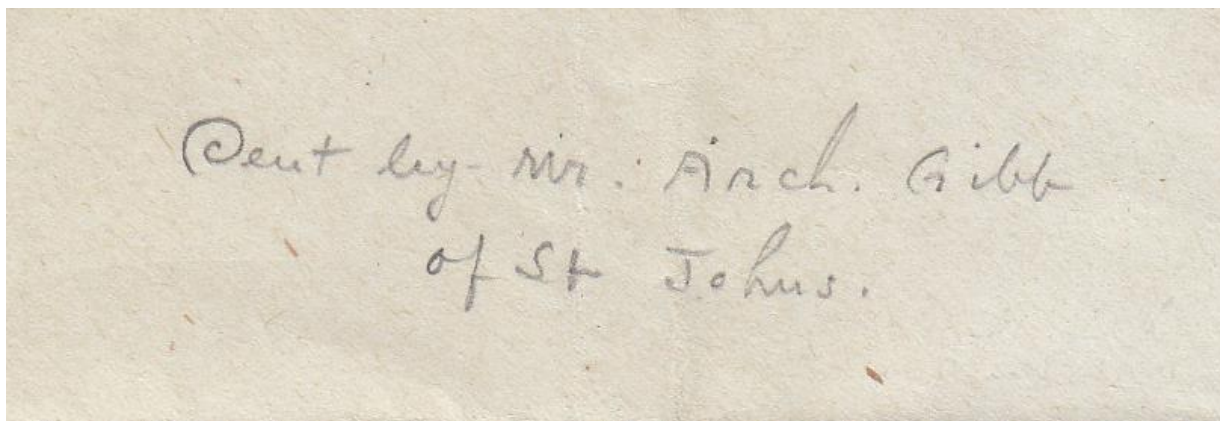 Sent by Mr. Arch. Gibb
of St Johns.